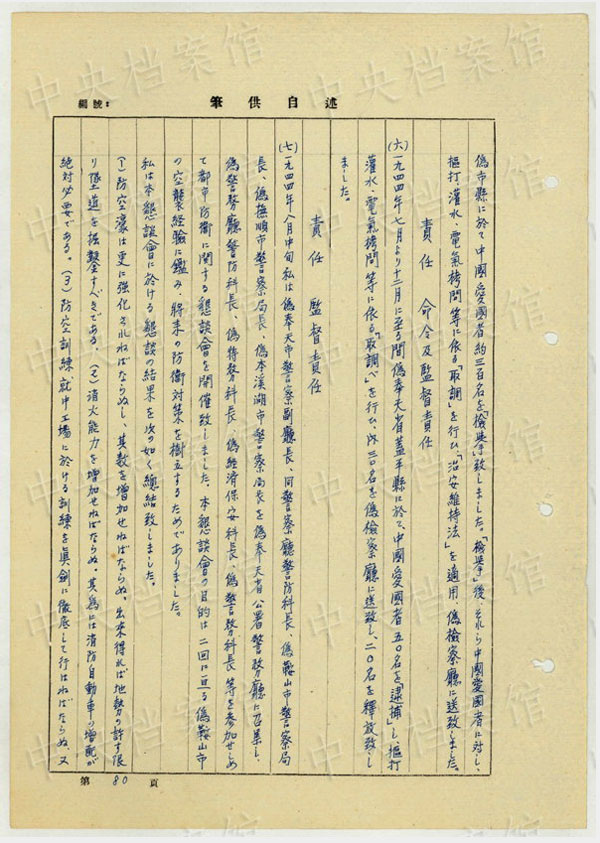 筆供自述
編號:
偽市縣に於て中國愛國者約三百名を「檢擧」致しました。「檢擧」後、それら中國愛國者に対し、
摳打灌水、電氣拷問等に依る「取調」を行ひ「治安維持法」を適用、偽檢察廳に送致しました。
責任 命令及監督責任
(六)一九四四年七月より十二月に至る間偽奉天省蓋平縣に於て、中國愛國者五〇名を「逮捕」し、摳打
灌水・電氣拷問等に依る「取調べ」を行ひ、内三〇名を偽檢察廳に送致し、二〇名を釋放致し
ました。
責任 監督責任
(七)一九四四年八月中旬私は偽奉天市警察副廳長、同警察廳警防科長、偽鞍山市警察局
長、偽撫順市警察局長、偽本溪湖市警察局長を偽奉天省公署警務廳に召集し、
偽警務廳警防科長、偽特務科長、偽經済保安科長、偽警務科長等を参加せしめ
て都市防衛に関する懇談会を開催致しました。本懇談会の目的は二回に亘る偽鞍山市
の空襲経験に鑑み將来の防衛対策を樹立するためでありました。
私は本懇談会に於ける懇談の結果を次の如く總結致しました。
(1)防空濠は更に強化されねばならぬし、其数を増加せねばならぬ。出来得れば地勢の許す限
り隧道を掘鑿すべきである、(2)消火能力を増加せねばならぬ。其為には消防自動車の増配が
絶対必要である。(3)防空訓練、就中工場に於ける訓練を眞劍に徹底して行はねばならぬ、又
第 80 頁
中央档案馆